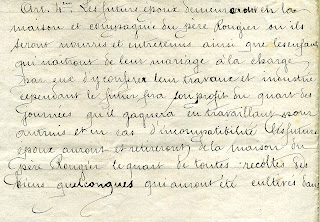 Art. 4me. Les futurs époux demeureront en la
maison et compagnie du père Rougier où ils
seront nourris et entretenus ainsi que les enfants
qui naitront de leur mariage à la charge
par eux d'y conférer leur travaux et industrie
cependant le futur fera son profit du quart des
journées qu'il gagnera en travaillant pour
autrui et en cas d'incompatibilité les futurs
époux auront et retireront de la maison du
père Rougier le quart de toutes recoltes des
biens quelconques qui auront été cultivés dans